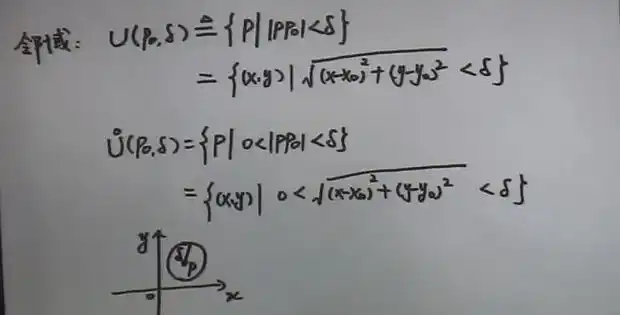 邻域: U(P₀,δ)≜{P| |PP₀|<δ}
={(x,y)|√(x-x₀)²+(y-y₀)² <δ}
Ů(P₀,δ)={P| 0<|PP₀|<δ}
={(x,y)| 0<√(x-x₀)²+(y-y₀)² <δ}
y
δ P
0 x